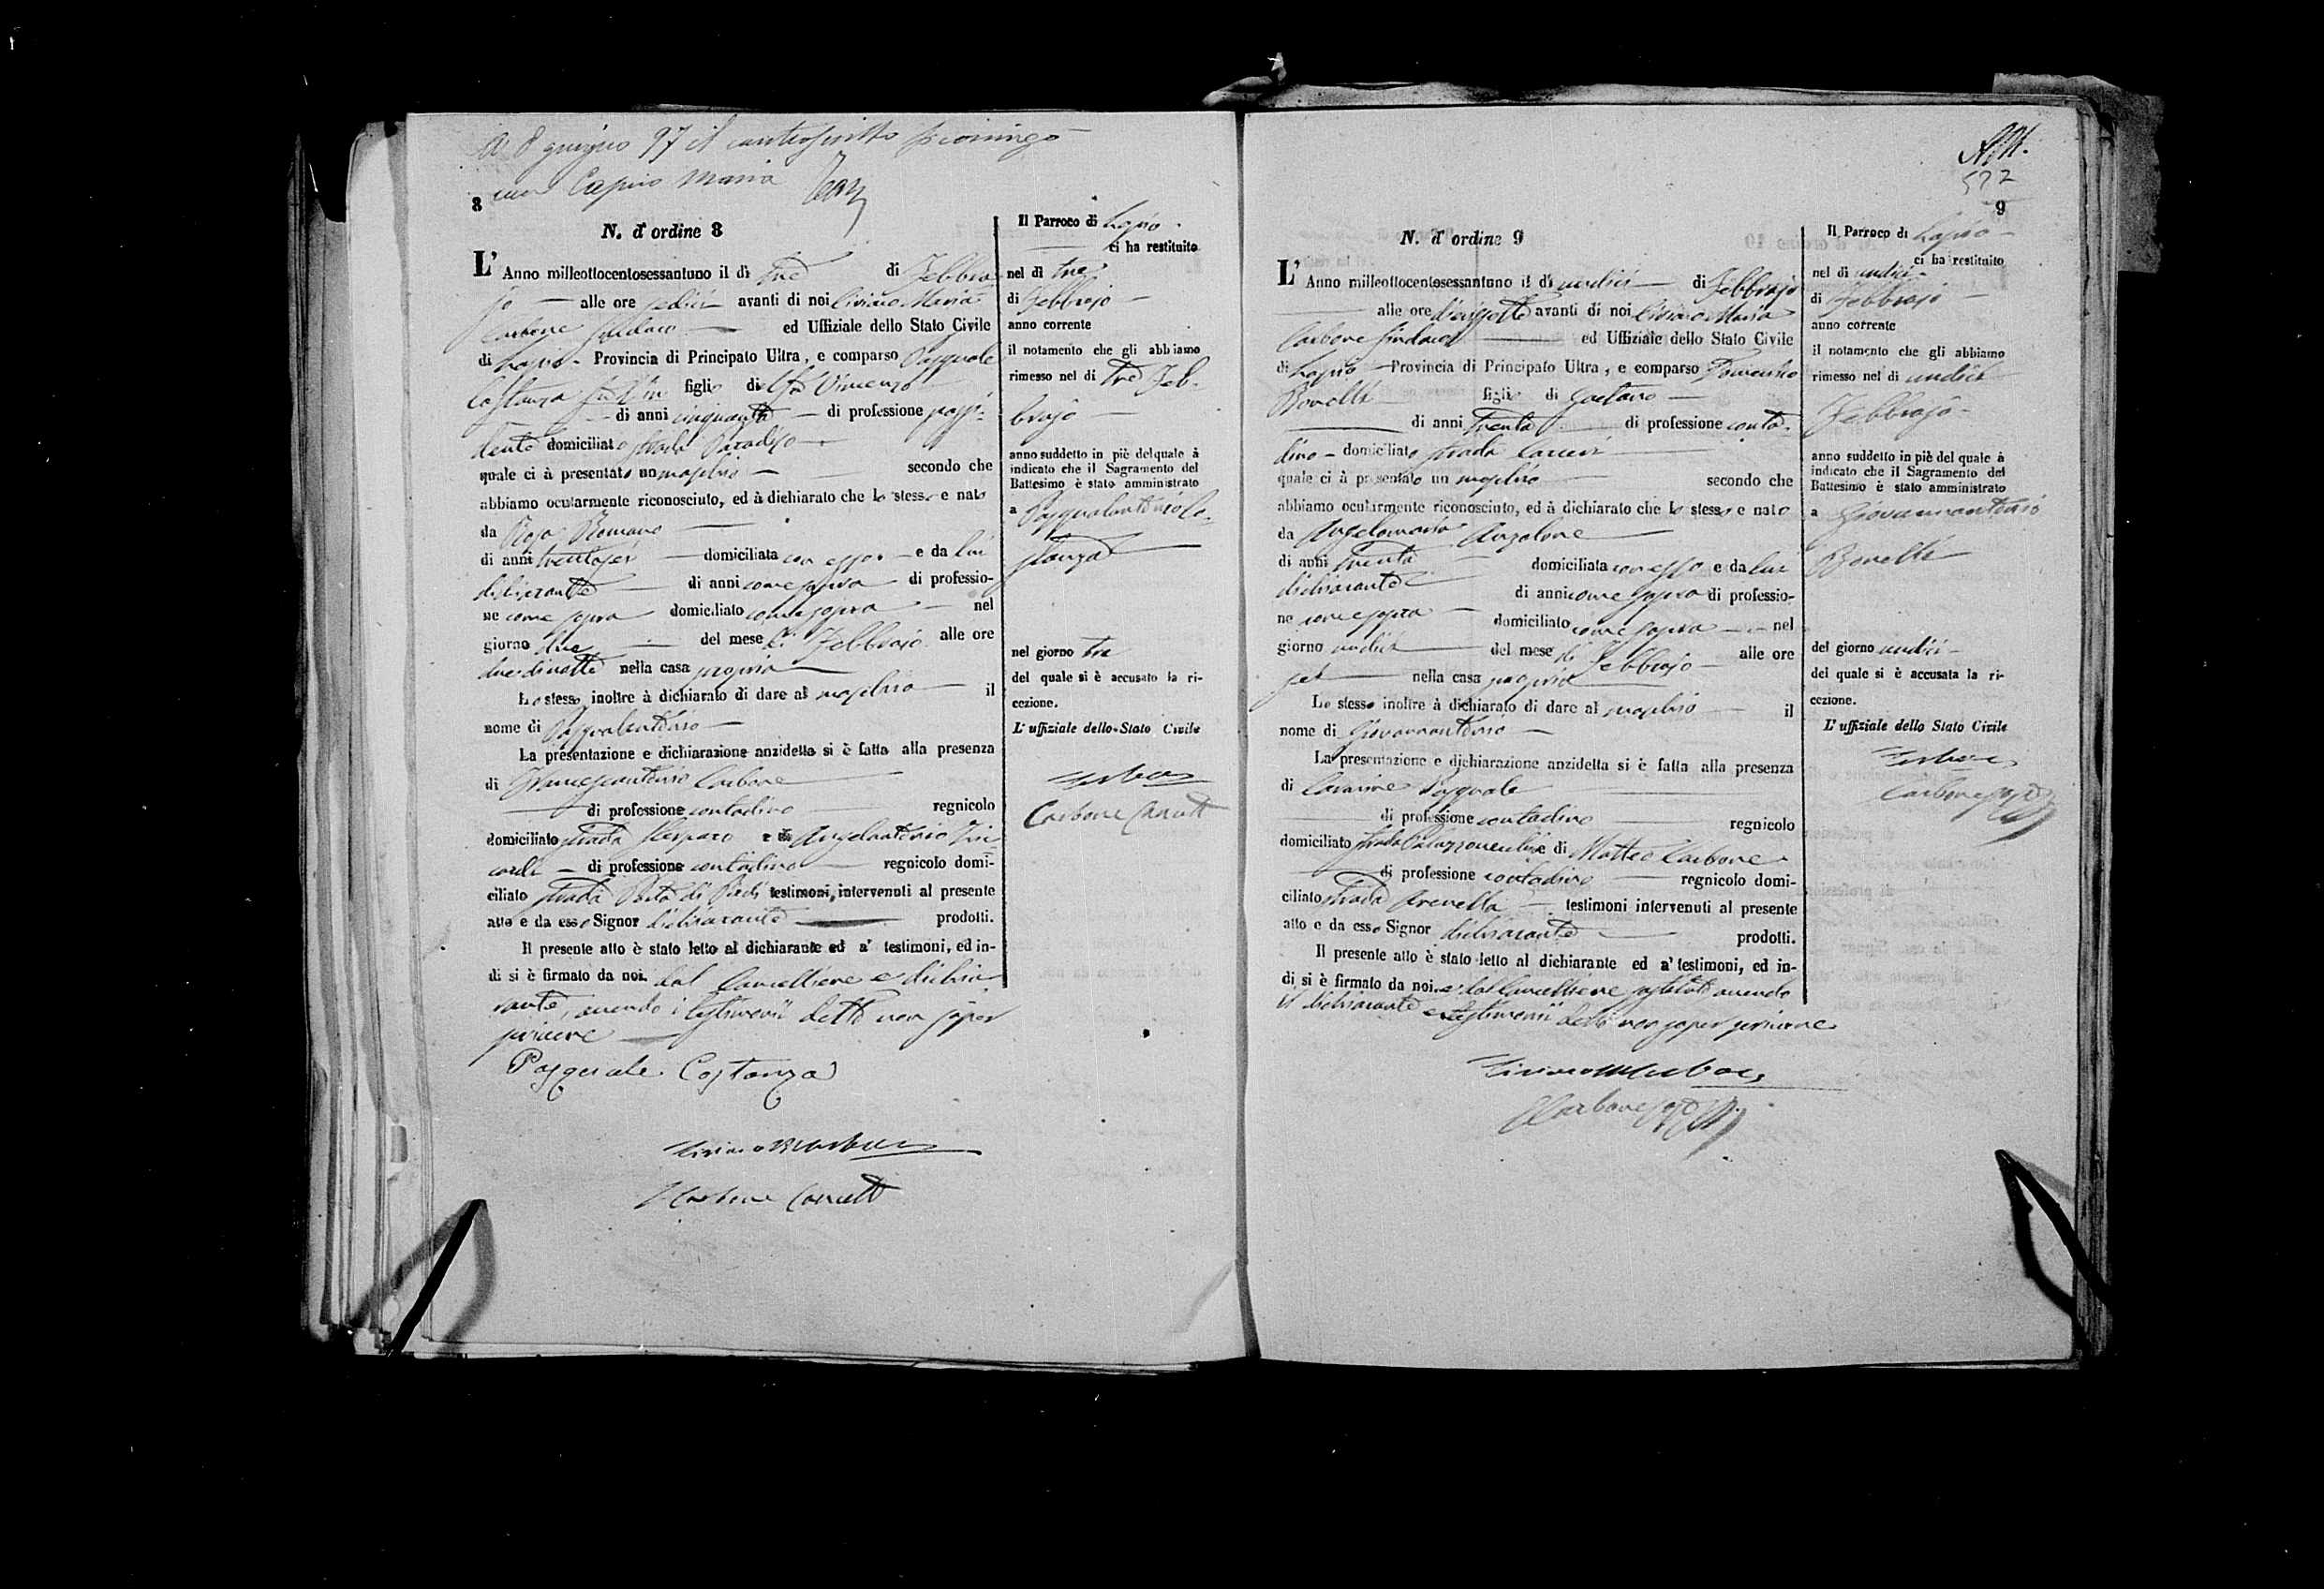 A 8 giugno 97 il controscritto
con Capino Maria
8
N. d'ordine 8
L' Anno milleottocentosessantuno il dì tre di Febbra
jo alle ore sedici avanti di noi Civino Maria
Carbone Sindaco ed Uffiziale dello Stato Civile
di Lapio Provincia di Principato Ultra, e comparso Pasquale
Costanza figlio del fu Vincenzo
di anni cinquanta di professione possi-
dente domiciliato strada Paradiso
quale ci à presentato un maschio secondo che
abbiamo ocularmente riconosciuto, ed à dichiarato che lo stesso e nato
da Rosa Romano
di anni trentasei domiciliata con esso e da lui
dichiarante di anni come sopra di professio-
ne come sopra domiciliato come sopra nel
giorno due del mese di Febbrajo alle ore
due di notte nella casa propria
Lo stesso inoltre à dichiarato di dare al maschio il
nome di Pasqualantonio
La presentazione e dichiarazione anzidetta si è fatta alla presenza
di Francescantonio Carbone
di professione contadino regnicolo
domiciliato strada e di Angelantonio
di professione contadino regnicolo domi-
ciliato strada Porta di Piedi testimoni, intervenuti al presente
atto e da esso Signor dichiarante prodotti.
Il presente atto è stato letto al dichiarante ed a' testimoni, ed in-
di si è firmato da noi, dal Cancelliere e dichia-
rante, avendo i testimonii detto non saper
scrivere
Pasquale Costanza
Carbone Cancell
Il Parroco di Lapio
ci ha restituito
nel dì tre
di Febbrajo
anno corrente
il notamento che gli abbiamo
rimesso nel di tre Feb-
brajo
anno suddetto in piè del quale à
indicato che il Sagramento del
Battesimo è stato amministrato
a Pasqualantonio Co-
stanza
nel giorno tre
del quale si è accusato la ri-
cezione.
L'uffiziale dello Stato Civile
Carbone Cancell
577
9
N. d'ordine 9
L' Anno milleottocentosessantuno il dì undici di Febbrajo
alle ore dicisette avanti di noi Civino Maria
Carbone Sindaco ed Uffiziale dello Stato Civile
di Lapio Provincia di Principato Ultra, e comparso Domenico
Bonelli figlio di Gaetano
di anni trenta di professione conta-
dino domiciliato strada Carceri
quale ci à presentato un maschio secondo che
abbiamo ocularmente riconosciuto, ed à dichiarato che lo stesso e nato
da Angelamaria Anzalone
di anni trenta domiciliata con esso e da lui
dichiarante di anni come sopra di professio-
ne come sopra domiciliato come sopra nel
giorno undici del mese di Febbrajo alle ore
sei nella casa propria
Lo stesso inoltre à dichiarato di dare al maschio il
nome di Giovannantonio
La presentazione e dichiarazione anzidetta si è fatta alla presenza
di Pasquale
di professione contadino regnicolo
domiciliato strada e di Matteo Carbone
di professione contadino regnicolo domi-
ciliato strada Arenella testimoni intervenuti al presente
atto e da esso Signor dichiarante prodotti.
Il presente atto è stato letto al dichiarante ed a' testimoni, ed in-
di si è firmato da noi, e dal Cancelliere sostituto avendo
il dichiarante e testimonii detto non saper scrivere
Carbone
Il Parroco di Lapio
ci ha restituito
nel di undici
di Febbrajo
anno corrente
il notamento che gli abbiamo
rimesso nel di undici
Febbrajo
anno suddetto in piè del quale à
indicato che il Sagramento del
Battesimo è stato amministrato
a Giovannantonio
Bonelli
del giorno undici
del quale si è accusata la ri-
cezione.
L'uffiziale dello Stato Civile
Carbone